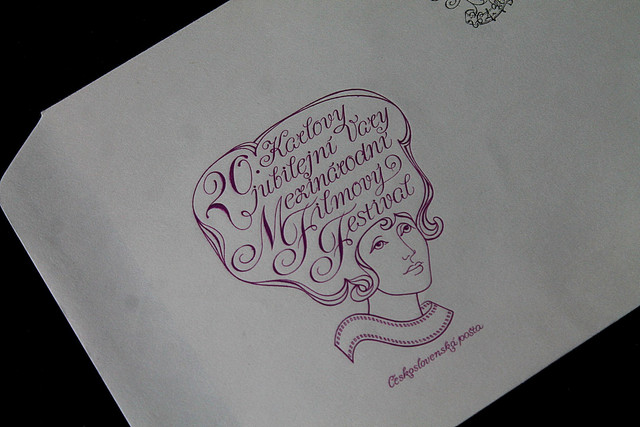 20. Karlovy Vary
jubilejní
Mezinárodní
Filmový
Festival
Československá pošta